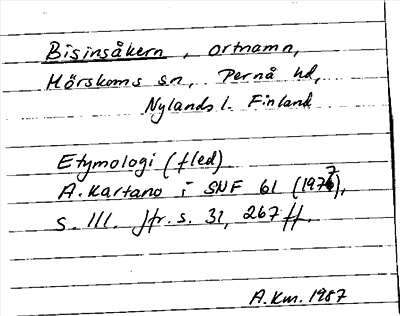 Bisinsåkern, ortnamn,
Mörskoms sn, Pernå hd,
Nylands l. Finland
Etymologi (fled)
A. Kartano i SNF 61 (1977),
s. 111. Jfr. s. 31, 267 ff.
A. Km. 1987